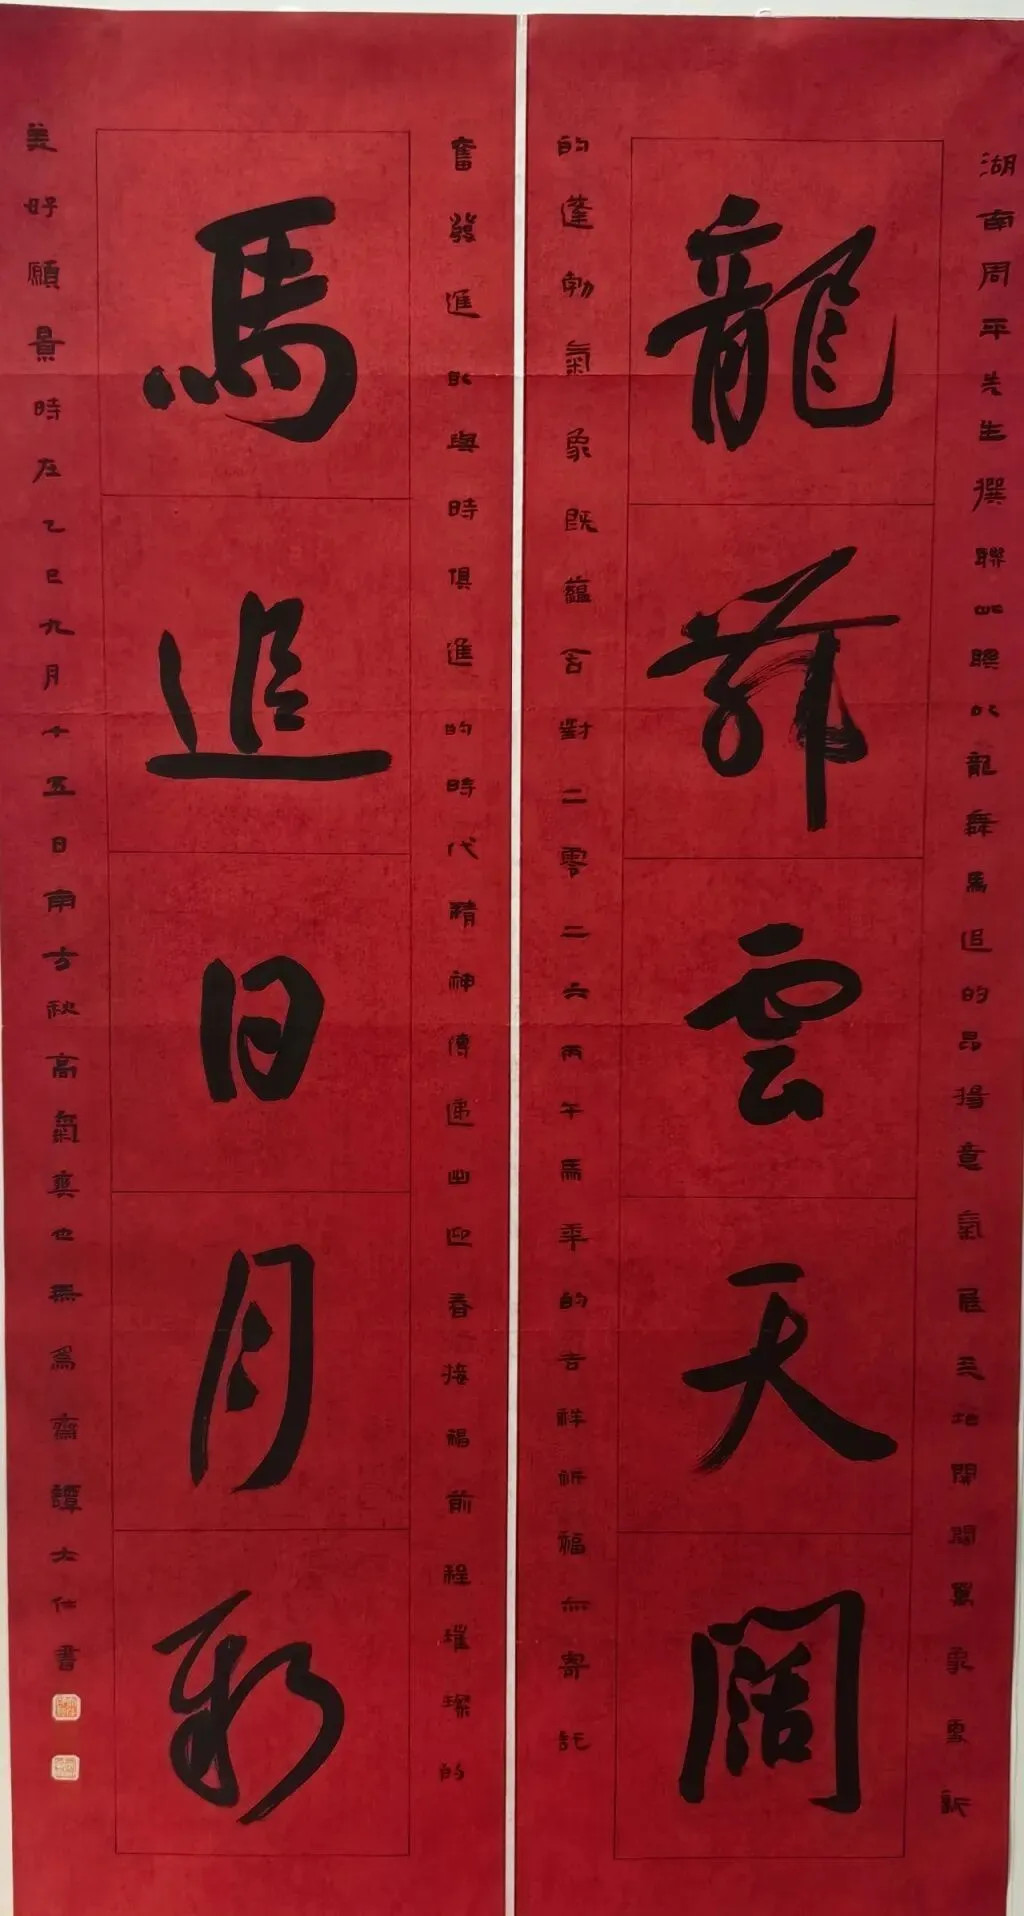 湖南周平先生撰聯此聯以龍舞馬追的昂揚意氣展天地開闊萬象更新
龍舞雲天闊
的蓬勃氣象既蘊含對二零二六丙午馬年的吉祥祈福亦寄託
奮發進取與時俱進的時代精神傳遞出迎春接福前程璀璨的
馬追日月新
美好願景時在乙巳九月十五日南方秋高氣爽也無為齋譚大仕書